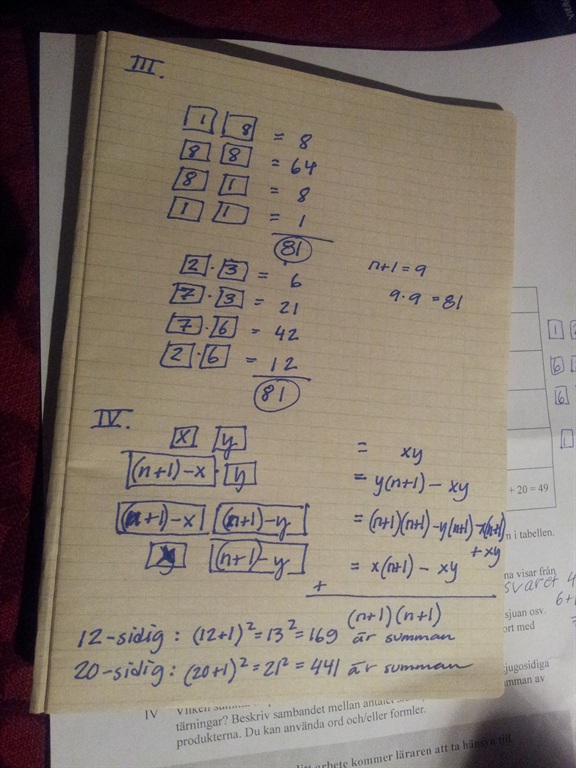 III.
1 8 = 8
8 8 = 64
8 1 = 8
1 1 = 1
81
2 · 3 = 6
7 · 3 = 21
7 · 6 = 42
2 · 6 = 12
81
n+1 = 9
9·9 = 81
IV.
x y = xy
(n+1)-x · y = y(n+1) - xy
(n+1)-x (n+1)-y = (n+1)(n+1) - y(n+1) - x(n+1) + xy
x (n+1)-y = x(n+1) - xy
+
(n+1)(n+1)
12-sidig: (12+1)² = 13² = 169 är summan
20-sidig: (20+1)² = 21² = 441 är summan
1
6
6
+ 20 = 49
n i tabellen.
na visar från
svaret 4
6+
sjuan osv.
ort med
jugosidiga
mman av
IV
tärningar? Beskriv sambandet mellan antalet
produkterna. Du kan använda ord och/eller formler.
arbete kommer läraren att ta hänsyn till